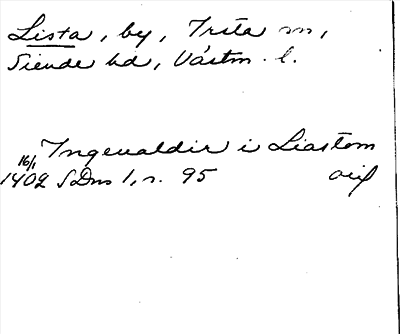 Lista, by, Irsta sn,
Siende hd, Västm. l.
Ingeualdir i Liastom
16/1 1402 SDns 1, s. 95 orig